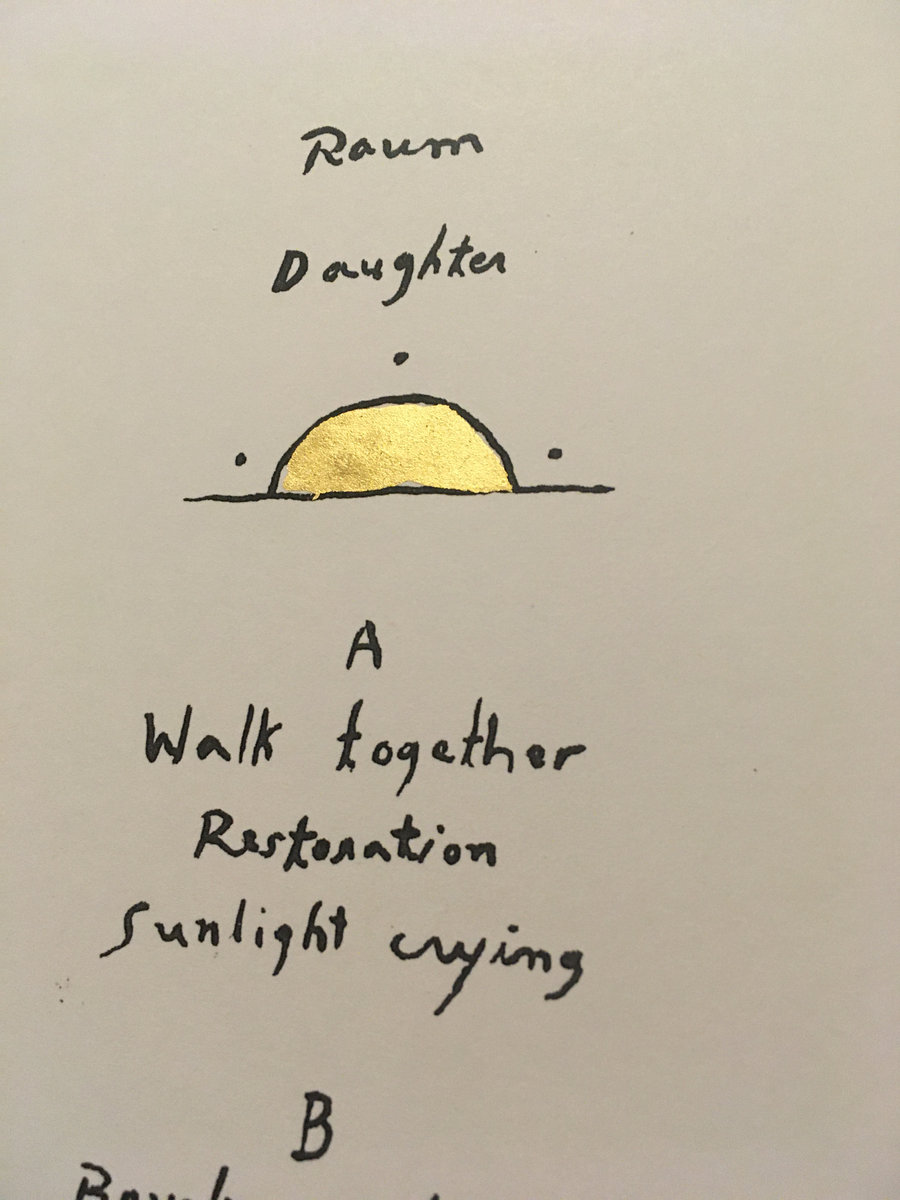 Raum
Daughter
A
Walk together
Restoration
Sunlight crying
B